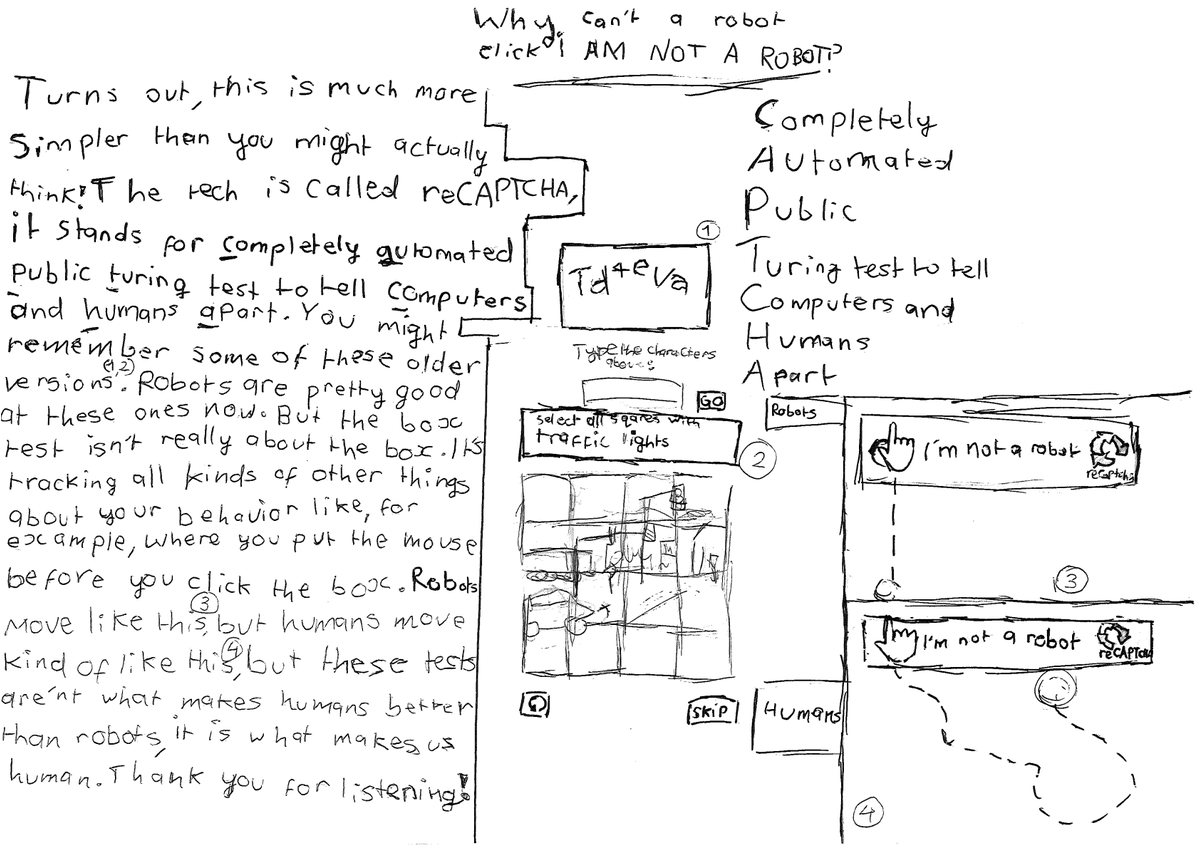 Why can't a robot
click "I AM NOT A ROBOT!?
Turns out, this is much more
simpler than you might actually
think! The tech is called reCAPTCHA,
it stands for completely automated
public turing test to tell computers
and humans apart. You might
remember some of these older
versions(1,2). Robots are pretty good
at these ones now. But the box
test isn't really about the box. It's
tracking all kinds of other things
about your behavior like, for
example, where you put the mouse
before you click the box. Robots
move like this,③ but humans move
kind of like this,④ but these tests
are'nt what makes humans better
than robots, it is what makes us
human. Thank you for listening!
①
Td4eVa
Type the characters
above:
GO
select all sqares with
traffic lights
②
SKIP
Completely
Automated
Public
Turing test to tell
Computers and
Humans
Apart
Robots
I'm not a robot
reCaptcha
③
Humans
I'm not a robot
reCAPTCHA
④